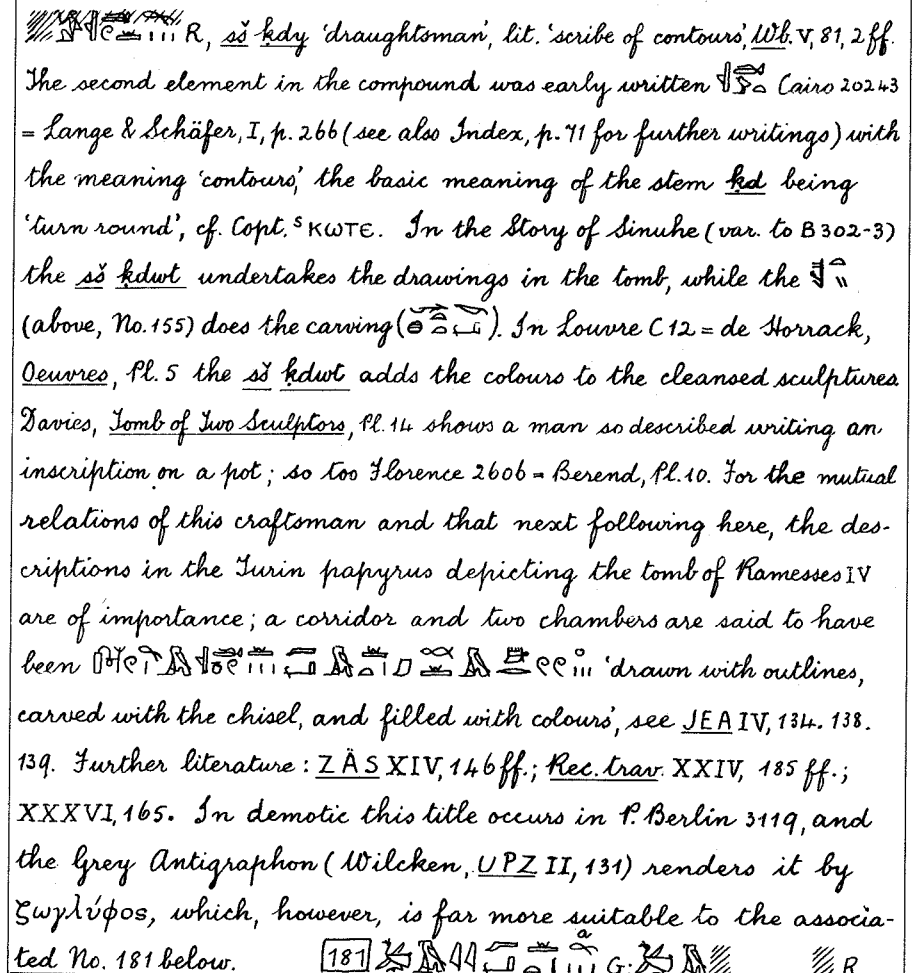 R, sš ḳdy 'draughtsman', lit. 'scribe of contours', Wb. V, 81, 2 ff.
The second element in the compound was early written Cairo 20243
= Lange & Schäfer, I, p. 266 (see also Index, p. 71 for further writings) with
the meaning 'contours,' the basic meaning of the stem ḳd being
'turn round', cf. Copt. ˢ ⲕⲱⲧⲉ. In the Story of Sinuhe (var. to B 302-3)
the sš ḳdwt undertakes the drawings in the tomb, while the
(above, No. 155) does the carving ( ). In Louvre C 12 = de Horrack,
Oeuvres, Pl. 5 the sš ḳdwt adds the colours to the cleansed sculptures.
Davies, Tomb of Two Sculptors, Pl. 14 shows a man so described writing an
inscription on a pot; so too Florence 2606 = Berend, Pl. 10. For the mutual
relations of this craftsman and that next following here, the des-
criptions in the Turin papyrus depicting the tomb of Ramesses IV
are of importance; a corridor and two chambers are said to have
been 'drawn with outlines,
carved with the chisel, and filled with colours', see JEA IV, 134. 138.
139. Further literature: ZÄS XIV, 146 ff.; Rec. trav. XXIV, 185 ff.;
XXXVI, 165. In demotic this title occurs in P. Berlin 3119, and
the Grey Antigraphon (Wilcken, UPZ II, 131) renders it by
ζωγλύφος, which, however, is far more suitable to the associa-
ted No. 181 below. 181 a G. R